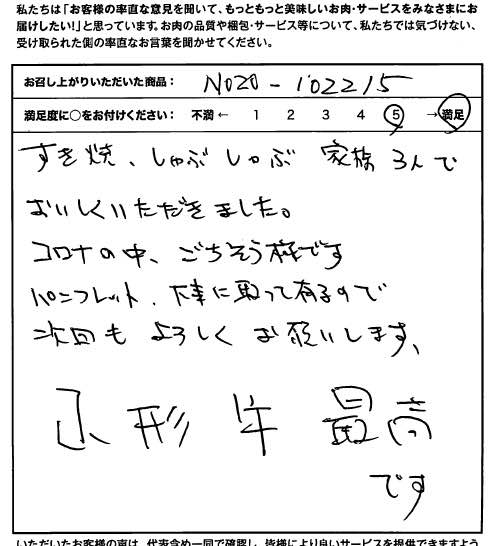 私たちは「お客様の率直な意見を聞いて、もっともっと美味しいお肉・サービスをみなさまにお
届けしたい!」と思っています。お肉の品質や梱包・サービス等について、私たちでは気づけない、
受け取られた側の率直なお言葉を聞かせてください。
お召し上がりいただいた商品: No20-102215
満足度に○をお付けください: 不満 ← 1 2 3 4 5 → 満足
すき焼、しゃぶしゃぶ 家族3人で
おいしくいただきました。
コロナの中、ごちそう様です
パンフレット、大事に取って有るので
次回もよろしくお願いします、
山形牛 最高
です
いただいたお客様の声は、代表含め一同で確認し、皆様により良いサービスを提供できますよう